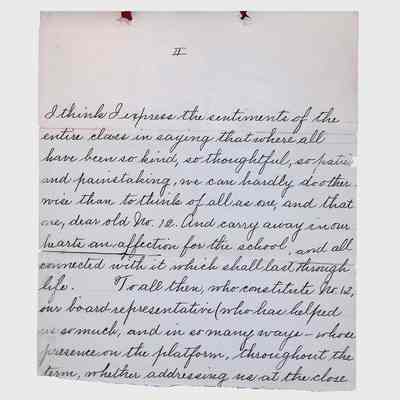 II
I think I express the sentiments of the
entire class in saying that where all
have been so kind, so thoughtful, so patie
and painstaking, we can hardly do other-
wise than to think of all as one, and that
one, dear old No. 12. And carry away in our
hearts an affection for the school, and all
connected with it which shall last through
life. To all then, who constitute No. 12,
our board representative (who has helped
us so much, and in so many ways - whose
presence on the platform, throughout the
term, whether addressing us at the close